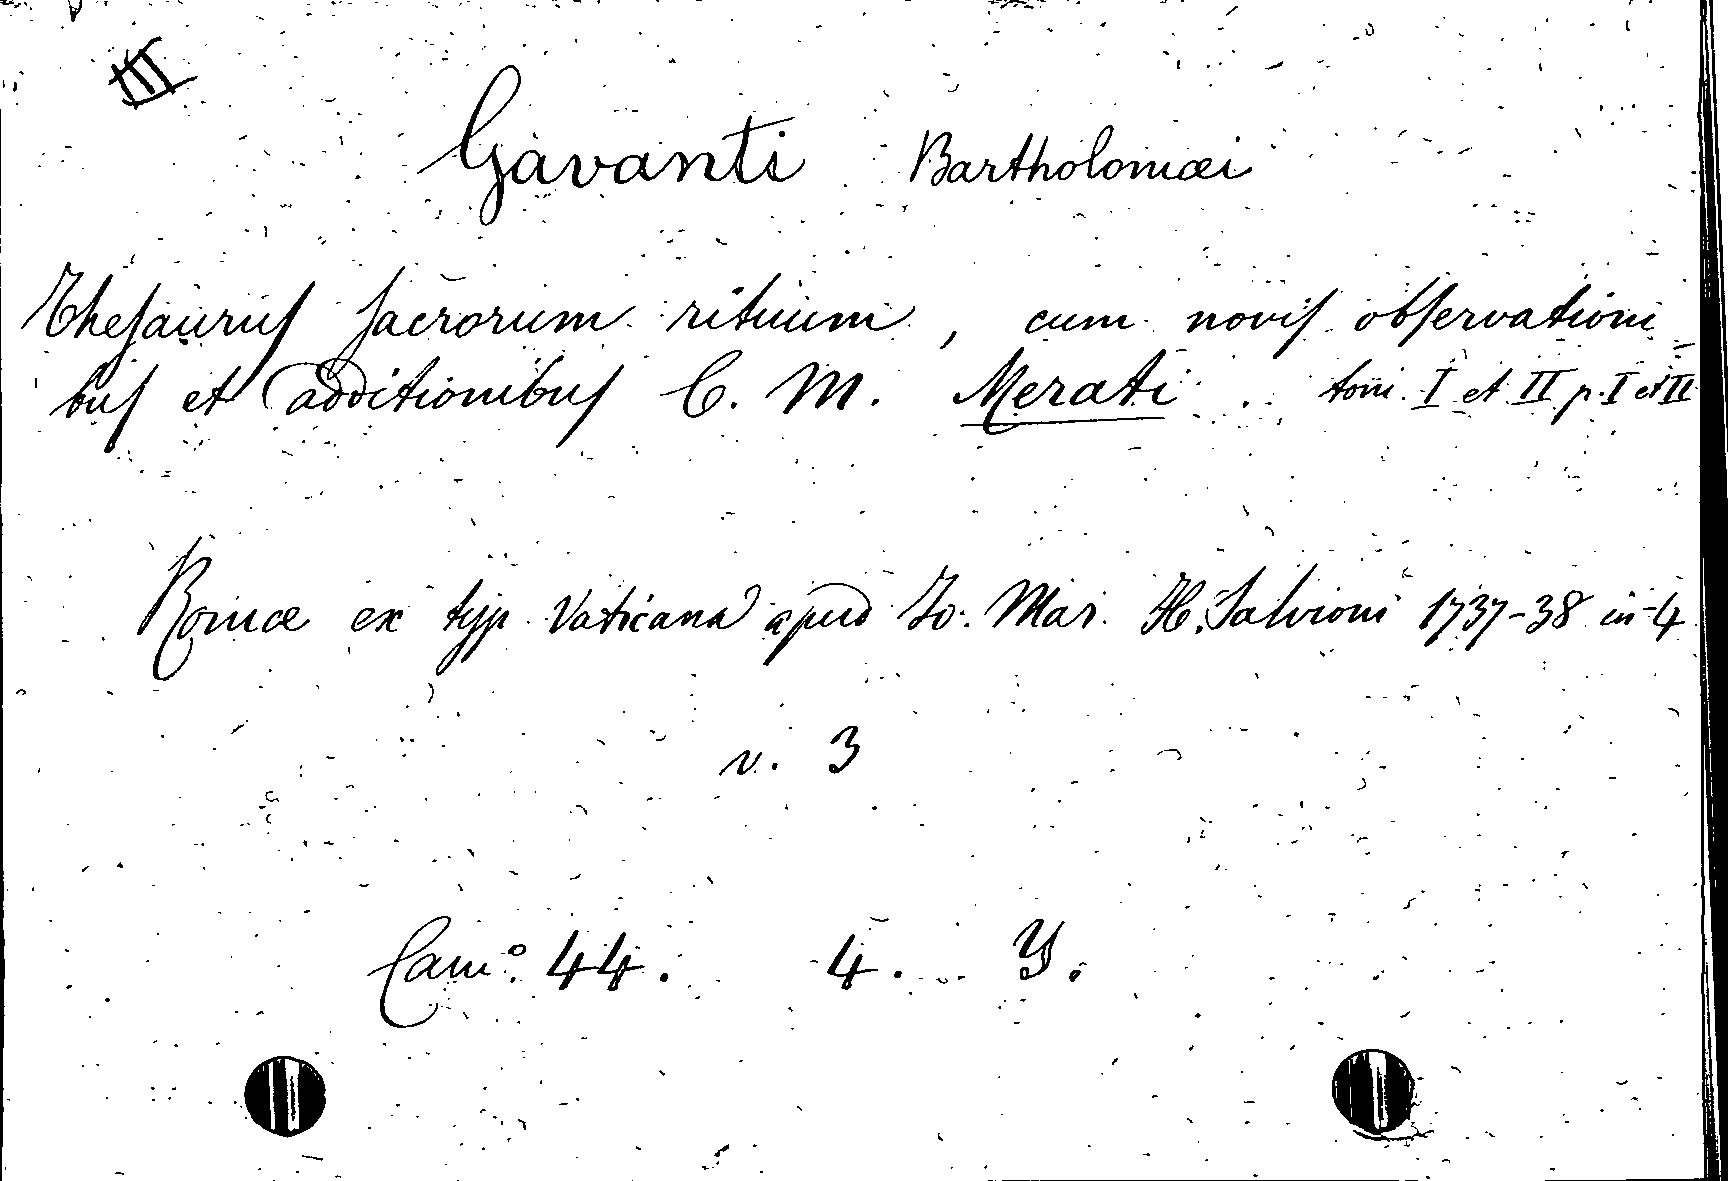 III
Gavanti Bartholomæi
Thesaurus sacrorum rituum, cum novis observationi
bus et additionibus C. M. Merati. tomi I et II p. I et II
Romæ ex typ. Vaticana apud Jo. Mar. H. Salvioni 1737-38 in-4
v. 3
Cam.º 44. 4. Y.